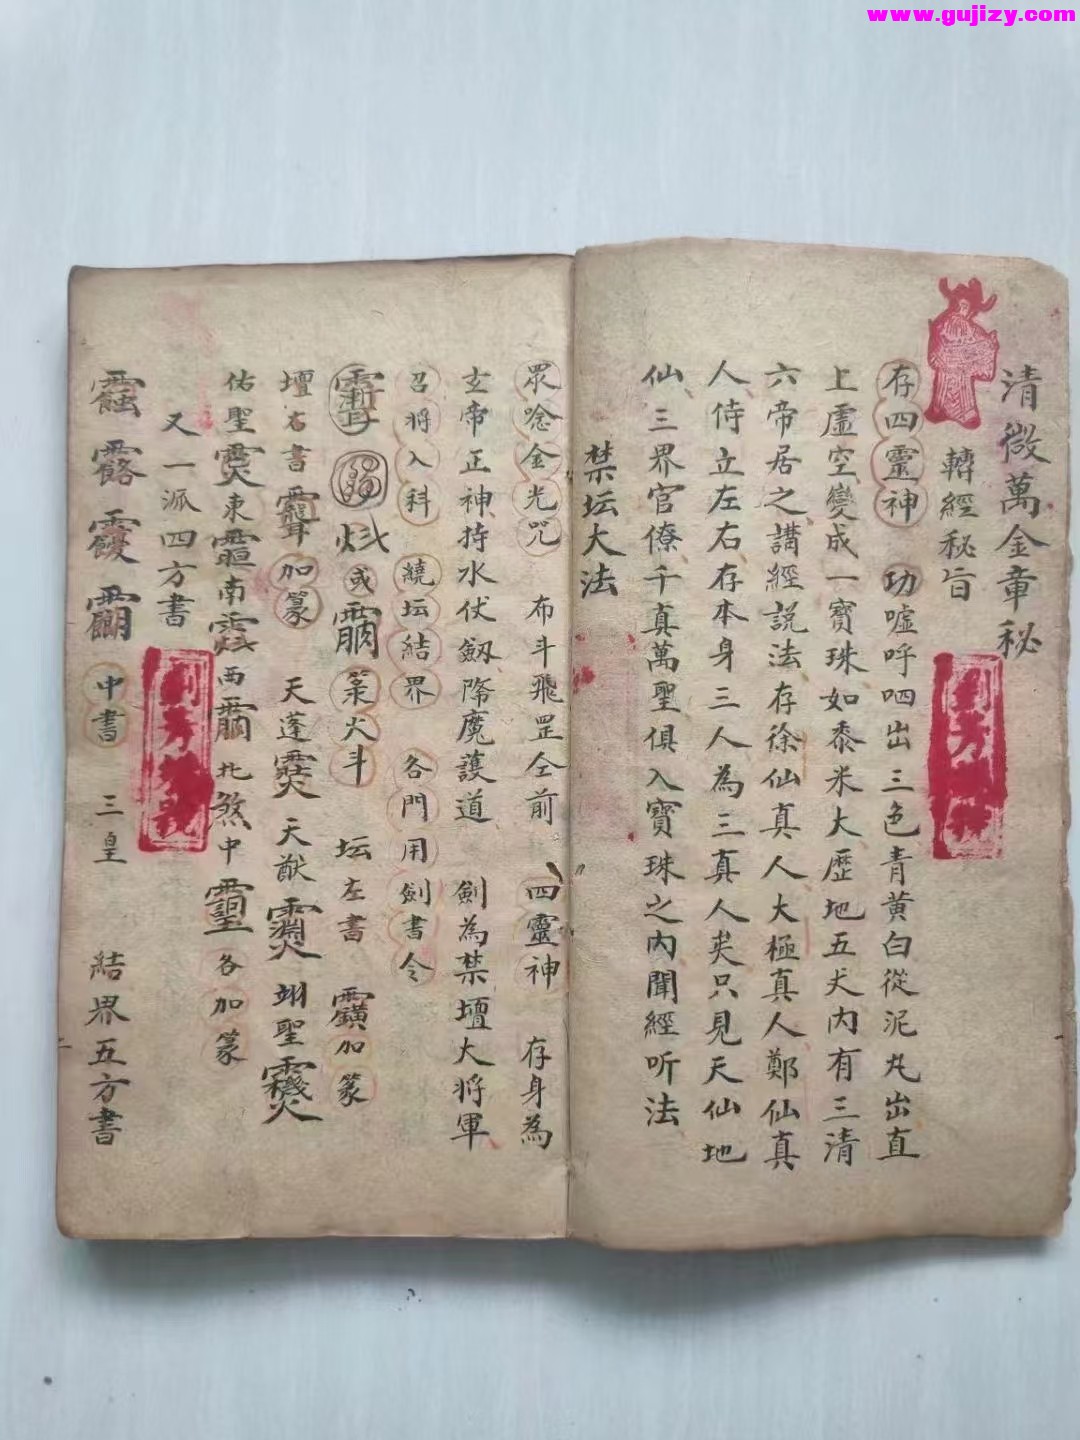 www.gujizy.com
清微萬金章秘
轉經秘旨
存四靈神 功噓呼呬出三色青黄白從泥丸出直
上虛空變成一寶珠如黍米大歷地五丈内有三清
六帝居之講經説法存徐仙真人大極真人鄭仙真
人侍立左右存本身三人為三真人矣只見天仙地
仙三界官僚千真萬聖俱入寶珠之内聞經听法
禁坛大法
眾唸金光咒 布斗飛罡仝前 四靈神 存身為
玄帝正神持水伏劔降魔護道 劍為禁壇大将軍
召将入科 繞坛結界 各門用劍書令
或 篆火斗 坛左書 加篆
壇右書 加篆 天蓬 天猷 翊聖
佑聖 東 南 西 北煞中 各加篆
又一派四方書
中書 三皇 結界五方書